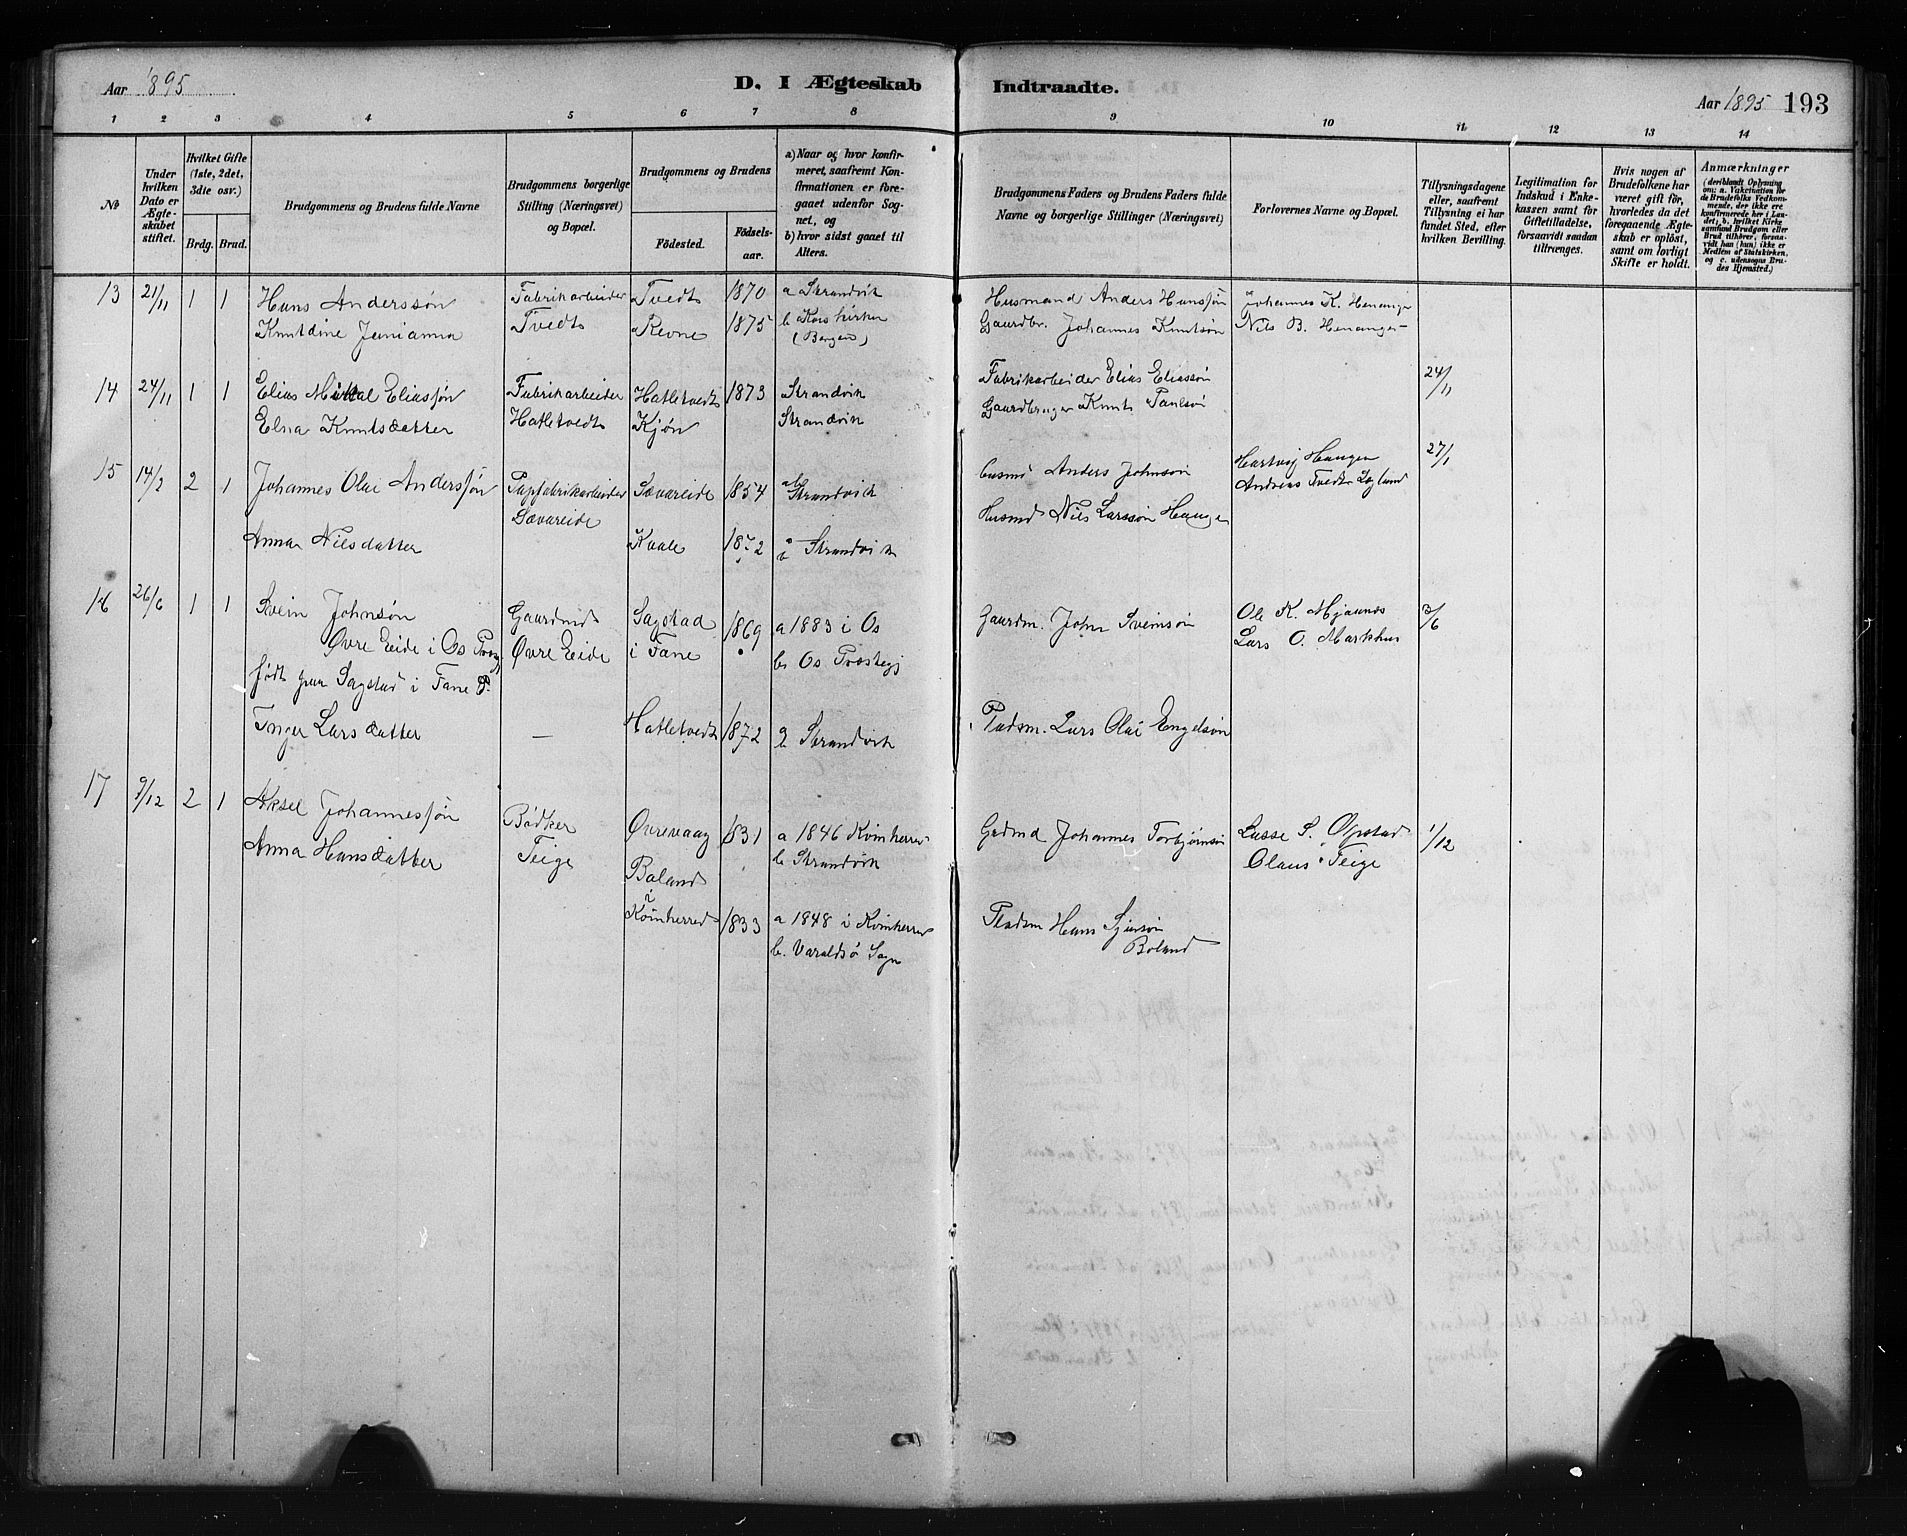 Aar 1895
D. I Ægteskab
Indtraadte.
Aar 1895 193
1 2 3 4 5 6 7 8 9 10 11 12 13 14
No
Under hvilken Dato er Ægteskabet stiftet.
Hvilket Gifte (1ste, 2det, 3die osv.)
Brdg. Brud.
Brudgommens og Brudens fulde Navne
Brudgommens borgerlige Stilling (Næringsvei) og Bopæl.
Brudgommens og Brudens
Födested. Födselsaar.
a) Naar og hvor konfirmeret, saafremt Konfirmationen er foregaaet udenfor Sognet, og
b) hvor sidst gaaet til Alters.
Brudgommens Faders og Brudens Faders fulde Navne og borgerlige Stillinger (Næringsvei)
Forlovernes Navne og Bopæl.
Tillysningsdagene eller, saafremt Tillysning ei har fundet Sted, efter hvilken Bevilling.
Legitimation for Indskud i Enkekassen samt for Giftetilladelse, forsaavidt saadan tiltrænges.
Hvis nogen af Brudefolkene har været gift för, hvorledes da det foregaaende Ægteskab er oplöst, samt om lovligt Skifte er holdt.
Anmærkninger
(deriblandt Oplysning om: a. Vakcination for de Brudefolks Vedkommende, der ikke ere konfirmerede her i Landet; b. hvilket Kirkesamfund Brudgom eller Brud tilhörer, forsaavidt han (hun) ikke er Medlem af Statskirken, og c. udensogns Brudes Hjemsted.)
13 21/11 1 1 Hans Anderssøn Fabrikarbeider Tvedt 1870 a Strandvik Husmand Anders Hanssøn Johannes K. Henanger
Knutdine Janianna Tvedt Revne 1875 b Korskirken Gaardbr. Johannes Knutsøn Nils B. Henanger
(Bergen)
14 24/11 1 1 Elias Mikal Eliassøn Fabrikarbeider Hatletvedt 1873 Strandvik Fabrikarbeider Elias Eliassøn 24/11
Elna Knutsdatter Hatletvedt Kjøn Strandvik Gaardbruger Knut Paulsøn
15 14/2 2 1 Johannes Olai Anderssøn Papfabrikarbeider Sævareide 1854 ab Strandvik Husmd Anders Johnsøn Hartvig Haugen 27/1
Sævareide Andreas Tvedt
Anna Nilsdatter Kaale 1872 a b Strandvik Husmd Nils Larssøn Haugen
16 26/6 1 1 Svein Johnsøn Gaardmd Sagstad 1869 a 1883 i Os Gaardm. John Sveinsøn Ole K. Mjaanes 3/6
Øvre Eide i Os Præg Øvre Eide i Fane b. Os Præstegj Lars O. Markhus
født paa Sagstad i Fane P.
Inger Larsdatter — Hatletvedt 1872 Strandvik Pladsm. Lars Olai Engelsøn
17 9/12 2 1 Aksel Johannessøn Bødker Øvrevaag 1831 a 1846 Kvinherred Grdmd Johannes Torbjørnsøn Lasse S. Opstad 1/12
Anna Hansdatter Teige b. Strandvik Olaus Teige
Boland
i
Kvinherred 1833 a 1848 i Kvinherred Pladsm Hans Sjursøn
b. Varaldsö Sogn Boland